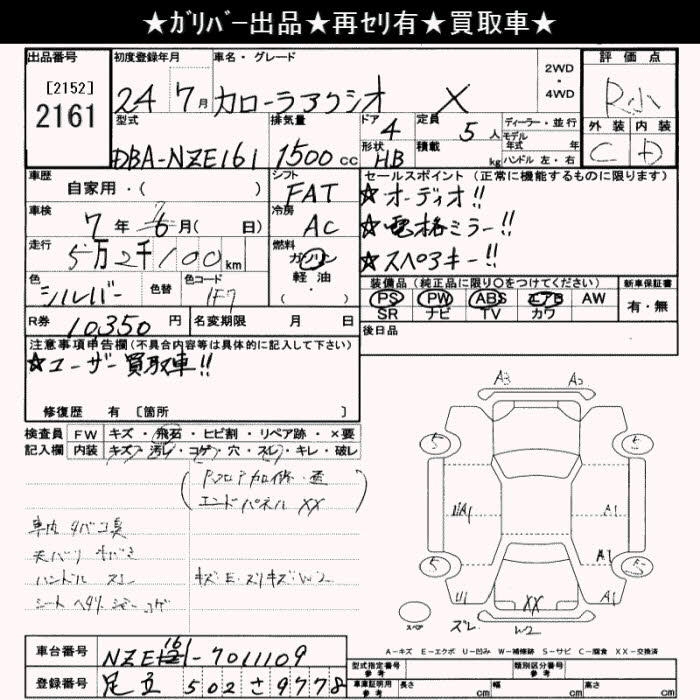 ★ｶﾞﾘﾊﾞｰ出品★再ｾﾘ有★買取車★
出品番号
[2152]
2161
初度登録年月
24 7月
車名・グレード
カローラアクシオ X
2WD
・
4WD
評価点
R小
外装 内装
C D
型式
DBA-NZE161
排気量
1500cc
ドア
4
形状
HB
定員
5人
積載
kg
ディーラー・並行
モデル
年式 年
ハンドル 左・右
車歴
自家用・( )
シフト
FAT
セールスポイント (正常に機能するものに限ります)
★オーディオ!!
★電格ミラー!!
★スペアキー!!
車検
7年6月( 日)
冷房
AC
走行
5万2千100km
燃料
ガソリン
軽・油
・( )
色
シルバー
色替
色コード
1F7
装備品 (純正品に限り○をつけてください)
PS PW ABS エアB AW
SR ナビ TV カワ
新車保証書
有・無
R券 10,350円
名変期限 月 日
後日品
注意事項申告欄(不具合内容等は具体的に記入して下さい)
★ユーザー買取車!!
修復歴 有 [箇所 ]
検査員 FW キズ・飛石・ヒビ割・リペア跡・×要
記入欄 内装 キズ・汚レ・コゲ・穴・スレ・キレ・破レ
エンドパネル XX
車内 タバコ臭
ハンドル スレ
キズ・E・スリキズ・W2
A3 A2
A1
A1
A1
U1
XX
ズレ W2
スペア
A-キズ E-エクボ U-凹み W-補修跡 S-サビ C-腐食 XX-交換済
車台番号
NZE161-7011109
登録番号
足立 502 さ 9778
型式指定番号
参考
類別区分番号
参考
車庫証明用
参考
長さ cm 幅 cm 高さ cm